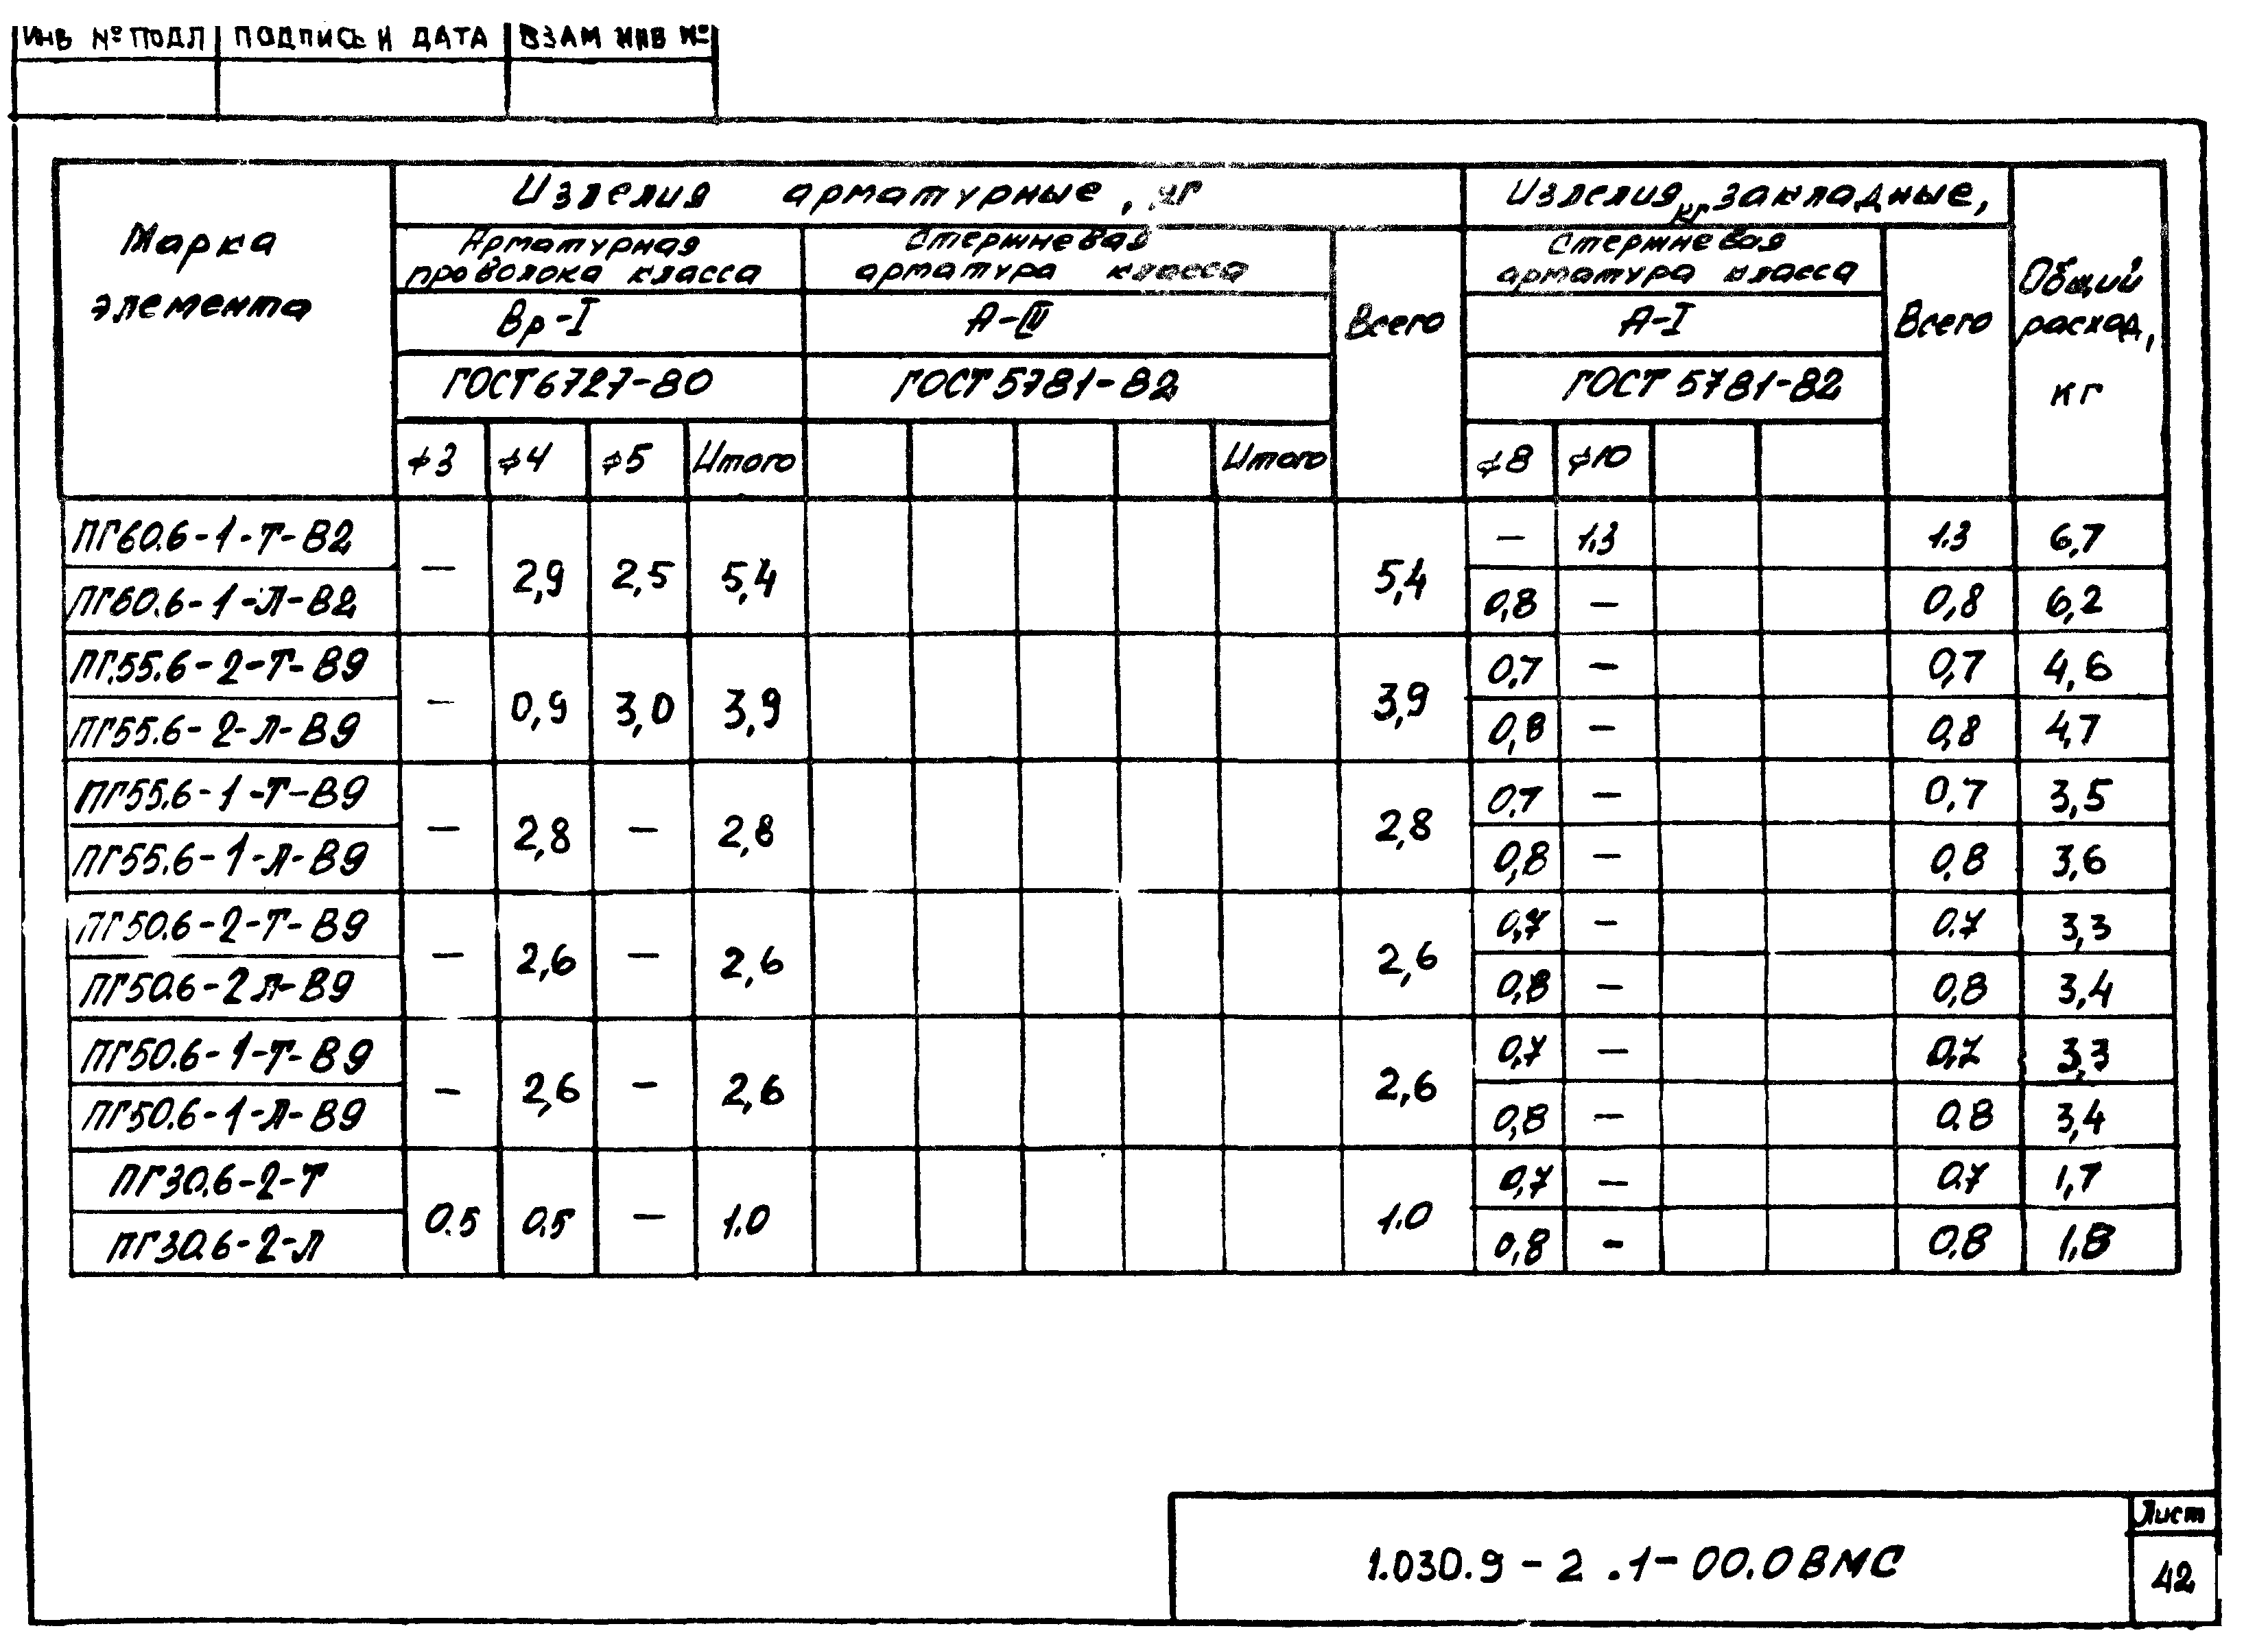 ИНВ № ПОДЛ ПОДПИСЬ И ДАТА ВЗАМ ИНВ №
Марка элемента
Изделия арматурные, кг
Изделия закладные, кг
Общий расход, кг
Арматурная проволока класса
Стержневая арматура класса
Всего
Стержневая арматура класса
Всего
Вр-I А-III А-I
ГОСТ 6727-80 ГОСТ 5781-82 ГОСТ 5781-82
ф3 ф4 ф5 Итого Итого ф8 ф10
ПГ60.6-1-Т-В2 — 2,9 2,5 5,4 5,4 — 1,3 1.3 6,7
ПГ60.6-1-Л-В2 0,8 — 0,8 6,2
ПГ55.6-2-Т-В9 — 0,9 3,0 3,9 3,9 0,7 — 0,7 4,6
ПГ55.6-2-Л-В9 0,8 — 0,8 4,7
ПГ55.6-1-Т-В9 — 2,8 — 2,8 2,8 0,7 — 0,7 3,5
ПГ55.6-1-Л-В9 0,8 — 0,8 3,6
ПГ50.6-2-Т-В9 — 2,6 — 2,6 2,6 0,7 — 0.7 3,3
ПГ50.6-2Л-В9 0,8 — 0,8 3,4
ПГ50.6-1-Т-В9 — 2,6 — 2,6 2,6 0,7 — 0,7 3,3
ПГ50.6-1-Л-В9 0,8 — 0.8 3,4
ПГ30.6-2-Т 0.5 0.5 — 1.0 1.0 0,7 — 0.7 1,7
ПГ30.6-2-Л 0,8 - 0.8 1,8
1.030.9-2.1-00.0ВМС
Лист
42